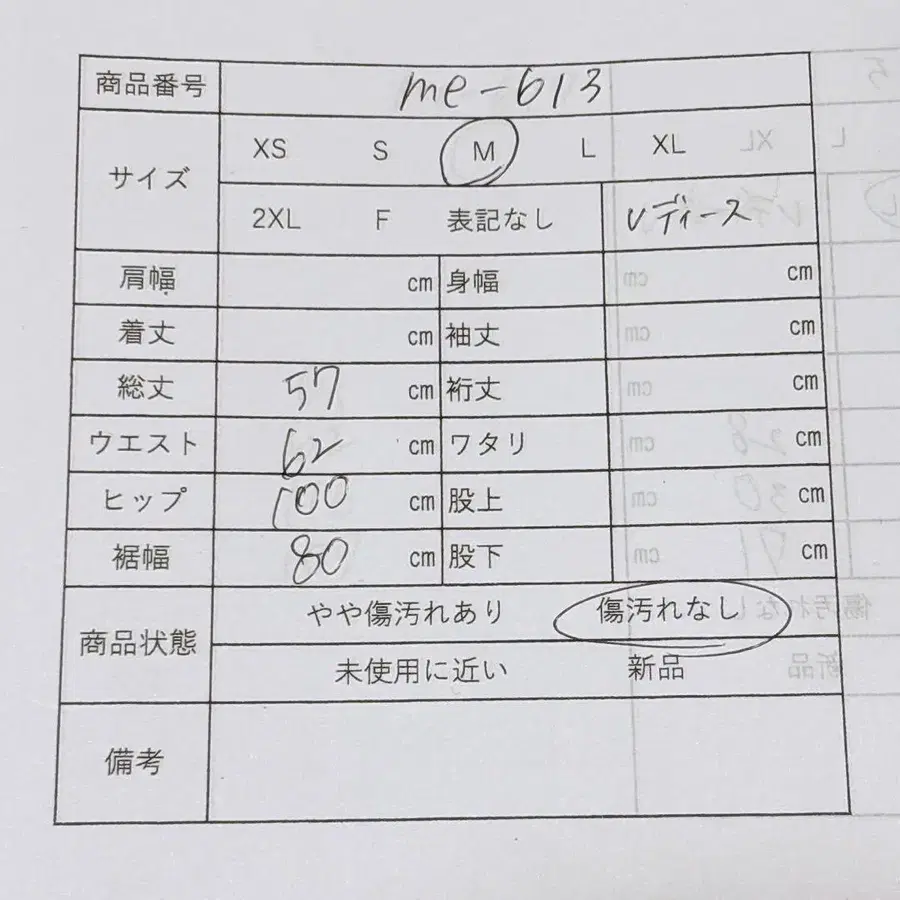 商品番号 me-613
サイズ XS S M L XL
2XL F 表記なし レディース
肩幅 cm 身幅 cm
着丈 cm 袖丈 cm
総丈 57 cm 裄丈 cm
ウエスト 62 cm ワタリ cm
ヒップ 100 cm 股上 cm
裾幅 80 cm 股下 cm
商品状態 やや傷汚れあり 傷汚れなし
未使用に近い 新品
備考